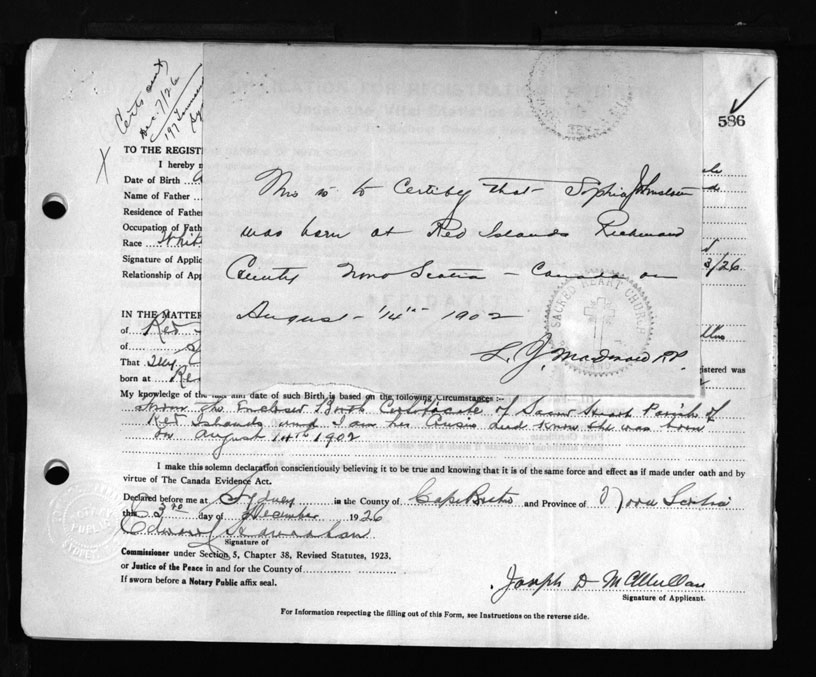 Certs sent
Dec 7/26
197
586
This is to Certify that Sophia Johnston
was born at Red Islands Richmond
County Nova Scotia - Canada on
August - 14th 1902
L. J. MacDonald P.P.
SACRED HEART CHURCH
TO THE REGIST
I hereby m
Date of Birth
Name of Father
Residence of Father
Occupation of Fath
Race White
Signature of Applic
3/26
Relationship of App
IN THE MATTER
of Red
of
That
gistered was
born at Red
My knowledge of the and date of such Birth is based on the following Circumstances :-
from the Enclosed Birth Certificate of Sacred Heart Parish of
Red Islands and I am her Cousin and know she was born
on August 14th 1902
I make this solemn declaration conscientiously believing it to be true and knowing that it is of the same force and effect as if made under oath and by
virtue of The Canada Evidence Act.
Declared before me at Sydney in the County of Cape Breton and Province of Nova Scotia
this 3rd day of December 1926
Signature of
Commissioner under Section 5, Chapter 38, Revised Statutes, 1923,
or Justice of the Peace in and for the County of
If sworn before a Notary Public affix seal.
Joseph D McMullan
Signature of Applicant.
For Information respecting the filling out of this Form, see Instructions on the reverse side.